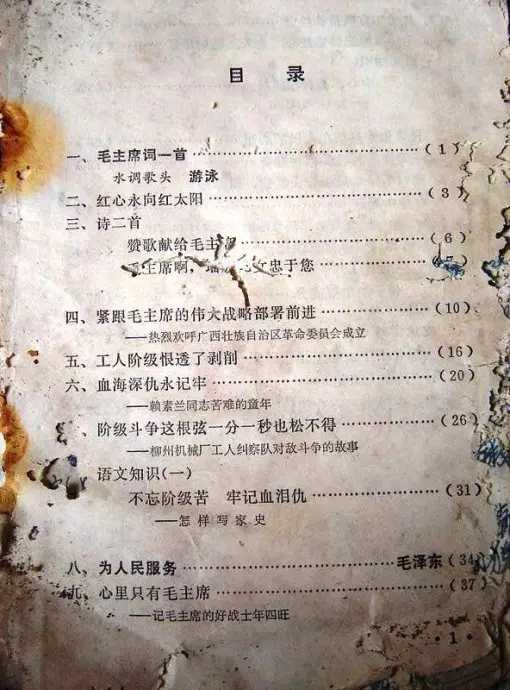 目 录
一、毛主席词一首……………………(1)
水调歌头 游泳
二、红心永向红太阳……………………(3)
三、诗二首
赞歌献给毛主……………………(6)
主席啊, 忠于您
四、紧跟毛主席的伟大战略部署前进……………(10)
——热烈欢呼广西壮族自治区革命委员会成立
五、工人阶级恨透了剥削………………(16)
六、血海深仇永记牢……………………(20)
——赖素兰同志苦难的童年
、阶级斗争这根弦一分一秒也松不得……………(26)
——柳州机械厂工人纠察队对敌斗争的故事
语文知识(一)
不忘阶级苦 牢记血泪仇………………(31)
——怎样写家史
八、为人民服务……………………毛泽东(34)
九、心里只有毛主席……………………(37)
——记毛主席的好战士年四旺
· 1 ·